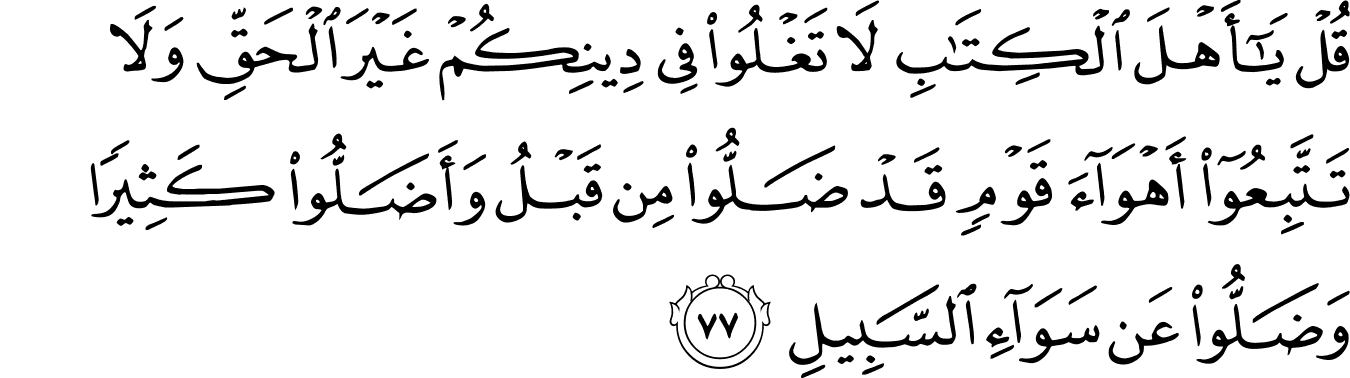 قُلْ يَـٰٓأَهْلَ ٱلْكِتَـٰبِ لَا تَغْلُوا۟ فِى دِينِكُمْ غَيْرَ ٱلْحَقِّ وَلَا
تَتَّبِعُوٓا۟ أَهْوَآءَ قَوْمٍ قَدْ ضَلُّوا۟ مِن قَبْلُ وَأَضَلُّوا۟ كَثِيرًا
وَضَلُّوا۟ عَن سَوَآءِ ٱلسَّبِيلِ ٧٧